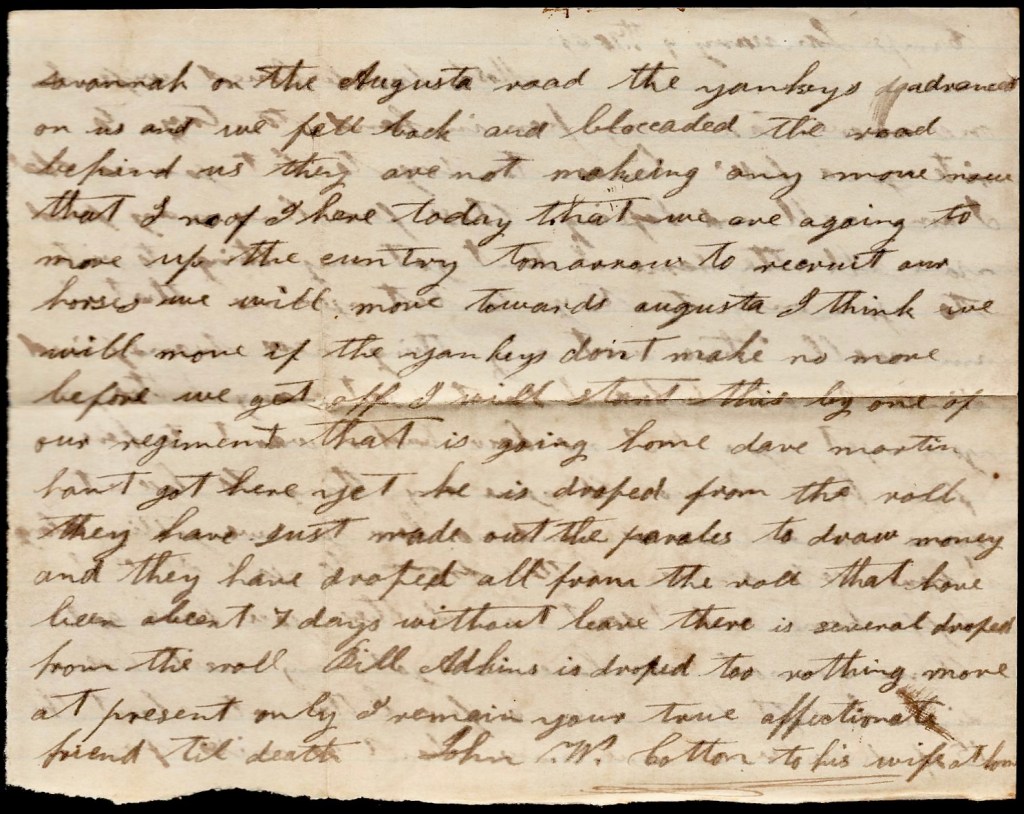 savannah on the Augusta road the yankeys advanced
on us and we fell back and bloccaded the road
behind us they are not makeing any move now
that I no of I here today that we are agoing to
move up the cuntry tomarrow to recruit our
horses we will move towards augusta I think we
will move if the yankeys dont make no move
before we get off I will start this by one of
our regiment that is going home dave martin
hant got here yet he is droped from the roll
they have just made out the paroles to draw money
and they have droped all from the roll that have
been abcent 7 days without leave there is several droped
from the roll Bill Adkins is droped too nothing more
at present only I remain your true affectionate
friend til death John W. Cotton to his wife at home